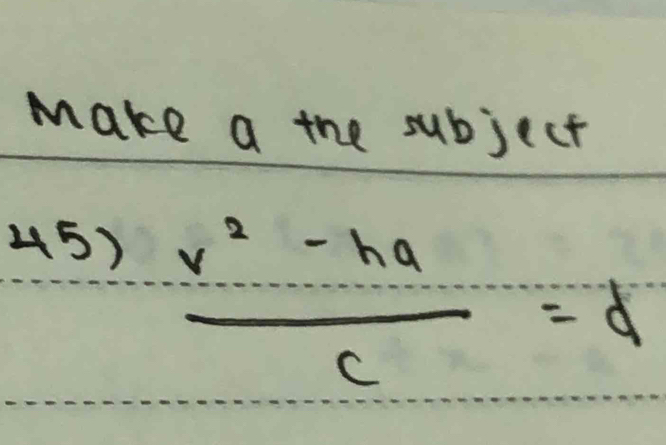 Make a the subject
45) v² - ha
= d
c